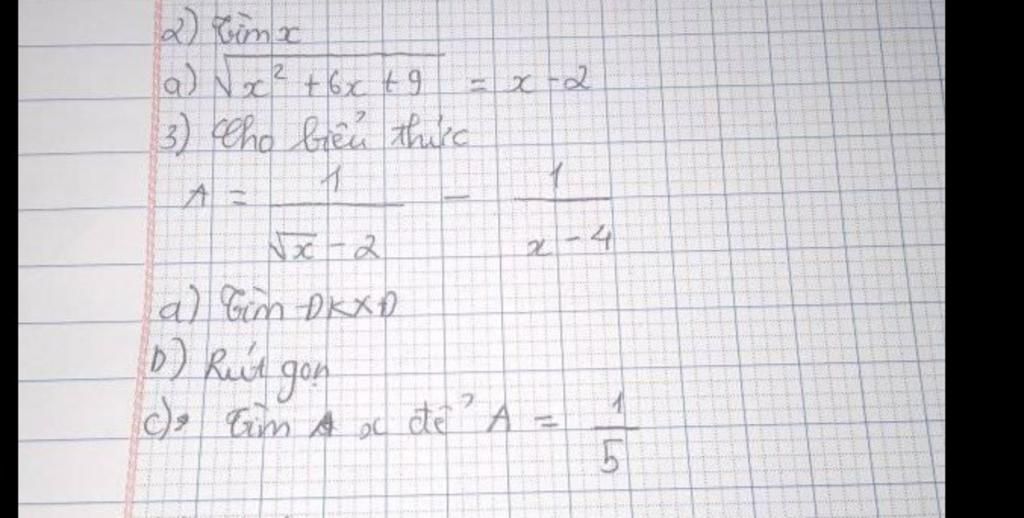 2) Tìm x
a) √(x² + 6x + 9) = x - 2
3) Cho biểu thức
A = 1/(√x - 2) - 1/(x - 4)
a) Tìm ĐKXĐ
b) Rút gọn
c) Tìm x để A = 1/5